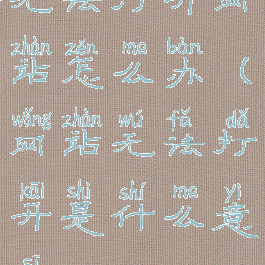 无法打开网
zhàn zěn me bàn
站怎么办（
wǎng zhàn wú fǎ dǎ
网站无法打
kāi shì shí me yì
开是什么意
sī